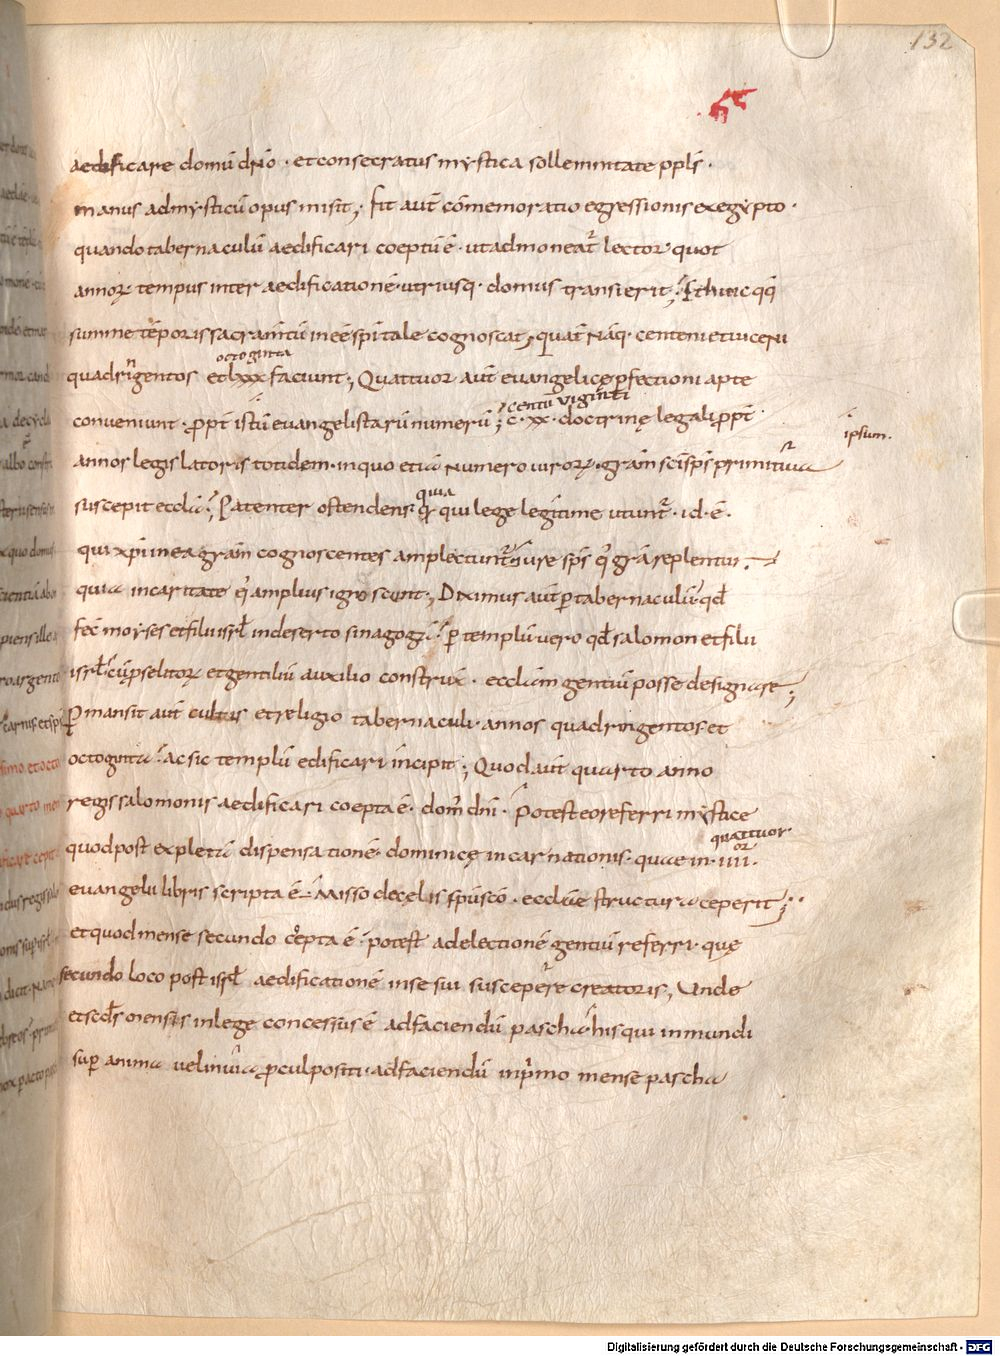 132
aedificare domū dn̄o · et consecratus mystica sollemnitate ppl̄s ·
manus ad mysticū opus misit ; Fit aut̄ cōmemoratio egressionis ex egypto ·
quando tabernaculū aedificari coeptū ē · ut admoneat̄ lector quot
annoꝝ tempus inter aedificationē utriusq · domus transierit ; Et huic qq̄
summe tēporis sacram̄tū inēē sp̄itale cognoscat ; quat̄ Nāq · centeni et viceni
octoginta
quadringentos et lxxx faciunt ; Quattuor aut̄ evangelicę ꝑfectioni apte
centū viginti
conveniunt · ꝓpt̄ istū evangelistarū numerū ; c · xx · doctrinę legali ꝓpt̄
ipsum .
annos legislatoris totidem · in quo etiā Numero viroꝝ · gr̄am sc̄i sp̄s primitiva
quia
suscepit eccl̄a ; Patenter ostendens qui lege legitime utunt̄ · id · ē ·
qui xp̄i in ea gr̄am cognoscentes amplectunt̄ iure sp̄s gr̄a replentur
quia in caritate amplius ignescunt ; Diximus aut̄ ꝑ tabernaculū qd̄
fec̄ moyses et filii isrl̄ in deserto sinagogā ; ꝑ templū vero qd̄ salomon et filii
isrl̄ cū ꝓselitoꝝ et gentiliū auxilio construx̄ · eccl̄am gentiū posse designare ;
Ꝑmansit aut̄ cultus et religio tabernaculi · annos quadringentos et
octoginta ac sic templū edificari incipit ; Quod aut̄ quarto anno
regis salomonis aedificari coepta ē · dom̄ dn̄i · Potest eo referri mystice
quattuor
quod post expletā dispensationē dominicę incarnationis · quae in · iiii ·
evangelii libris scripta ē Misso de cęlis sp̄u sc̄o · eccl̄ae structura ceperit ;
et quod mense secundo cępta ē · potest ad electionē gentiū referri · quę
secundo loco post isrl̄ aedificationē in se sui suscepere creatoris ; Unde
et sc̄ds mensis in lege concessus ē ad faciendū pascha his qui inmundi
sup̄ anima vel in via ꝓcul positi · ad faciendū in p̄mo mense pascha
Digitalisierung gefördert durch die Deutsche Forschungsgemeinschaft - DFG